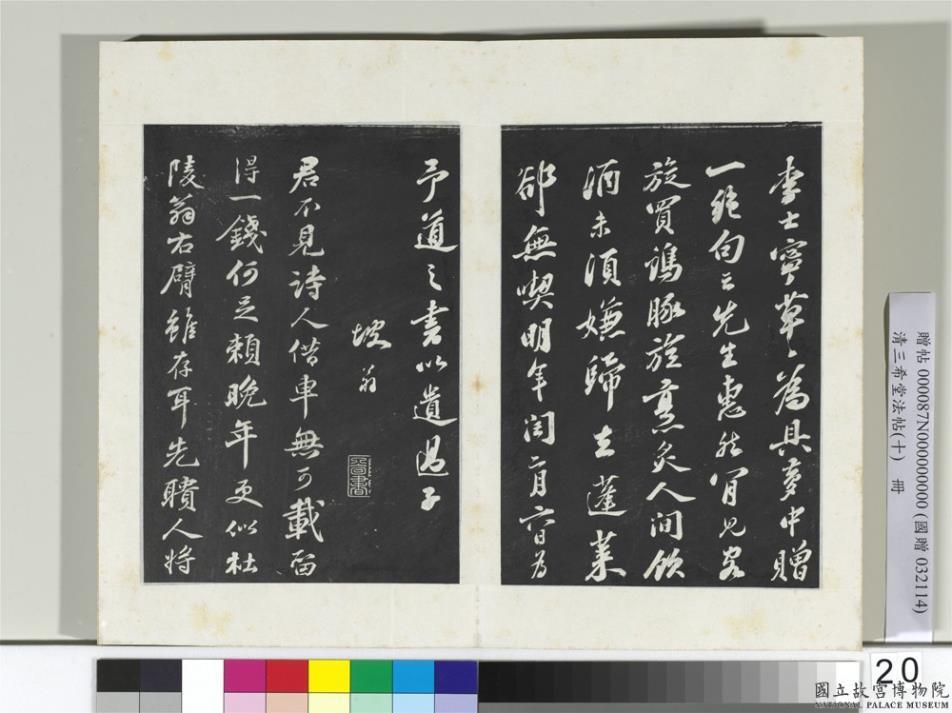 李士寧草草為具夢中贈
一絕句云先生惠然肯見客
旋買鷄豚旋烹炙人間飲
酒未須嫌歸去蓬萊
郤無喫明年閏二月六日為
予道之書以遺過子
坡翁
君不見詩人借車無可載留
得一錢何足賴晚年更似杜
陵翁右臂雖存耳先聵人將
贈帖 000087N000000000 (國贈 032114)
清三希堂法帖(十) 冊
20
國立故宮博物院
NATIONAL PALACE MUSEUM